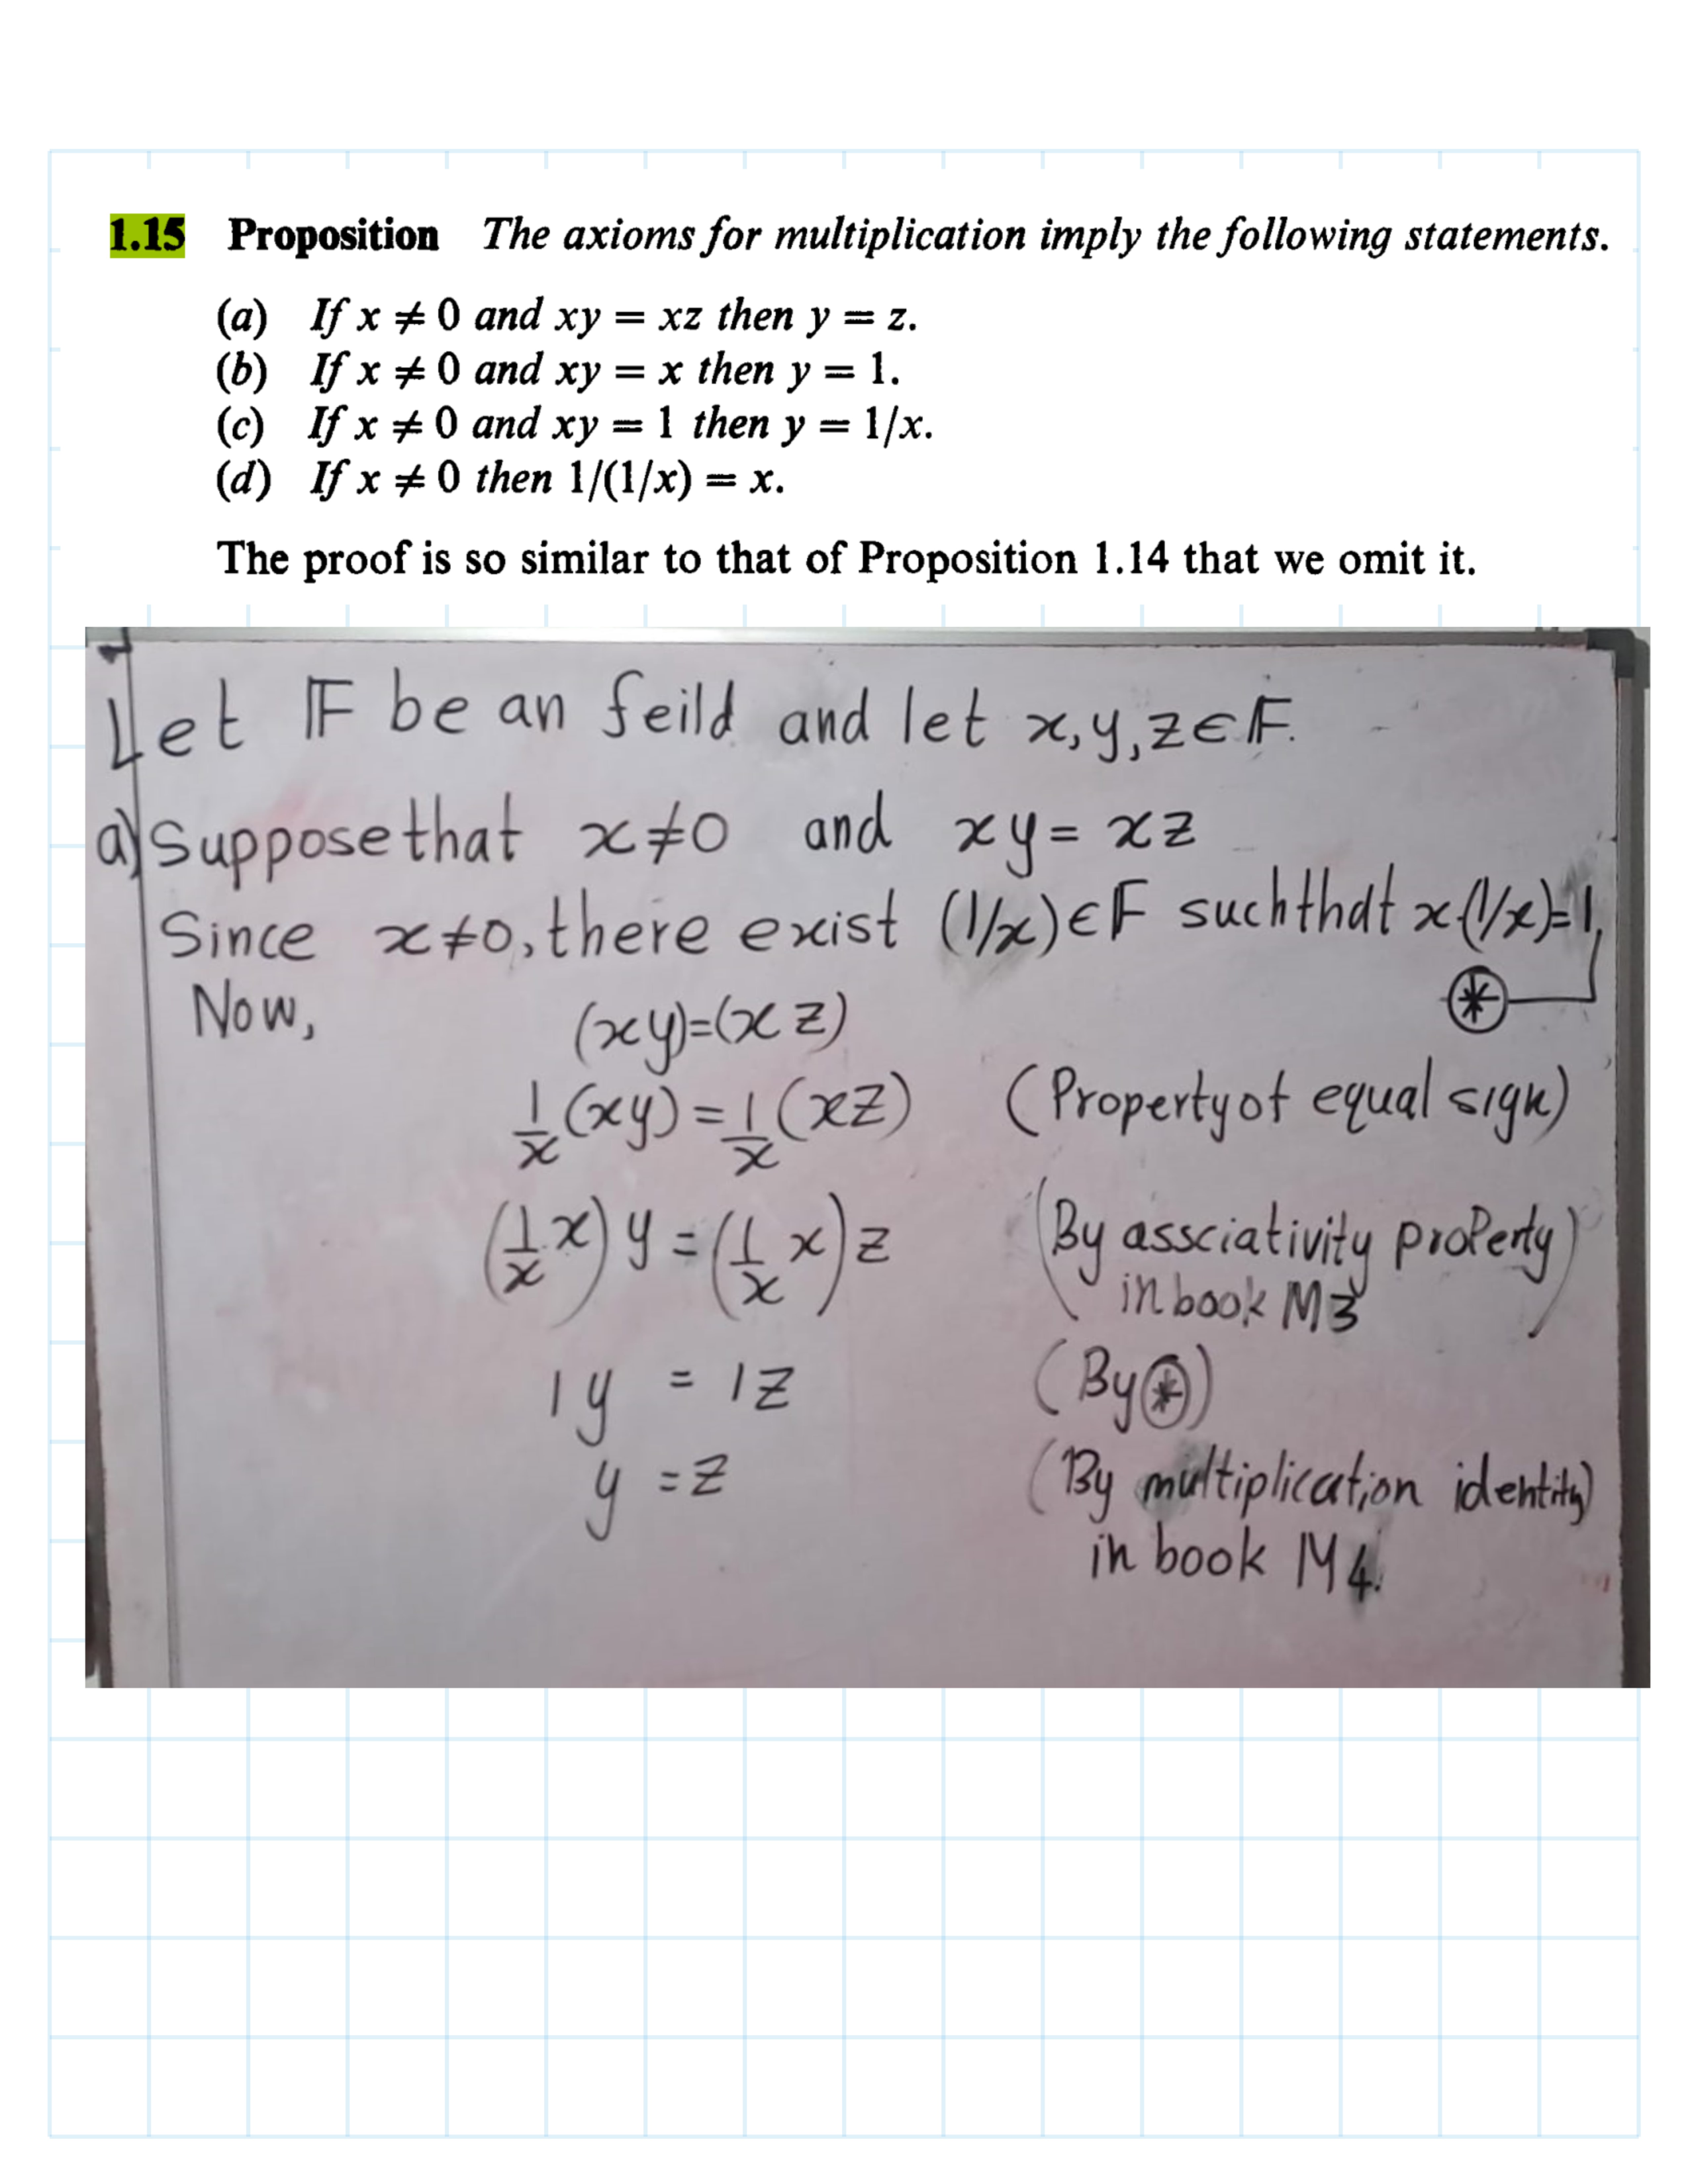 1.15 Proposition The axioms for multiplication imply the following statements.
(a) If x ≠ 0 and xy = xz then y = z.
(b) If x ≠ 0 and xy = x then y = 1.
(c) If x ≠ 0 and xy = 1 then y = 1/x.
(d) If x ≠ 0 then 1/(1/x) = x.
The proof is so similar to that of Proposition 1.14 that we omit it.
Let 𝔽 be an feild and let x,y,z∈𝔽.
a) Suppose that x≠0 and xy = xz
Since x≠0, there exist (1/x)∈𝔽 suchthat x·(1/x)=1,
⊛
Now, (xy)=(xz)
1/x (xy) = 1/x (xz) (Property of equal sign)
(1/x · x) y = (1/x x) z (By assciativity property
in book M3)
1y = 1z (By ⊛)
y = z (By multiplication identity)
in book M4.